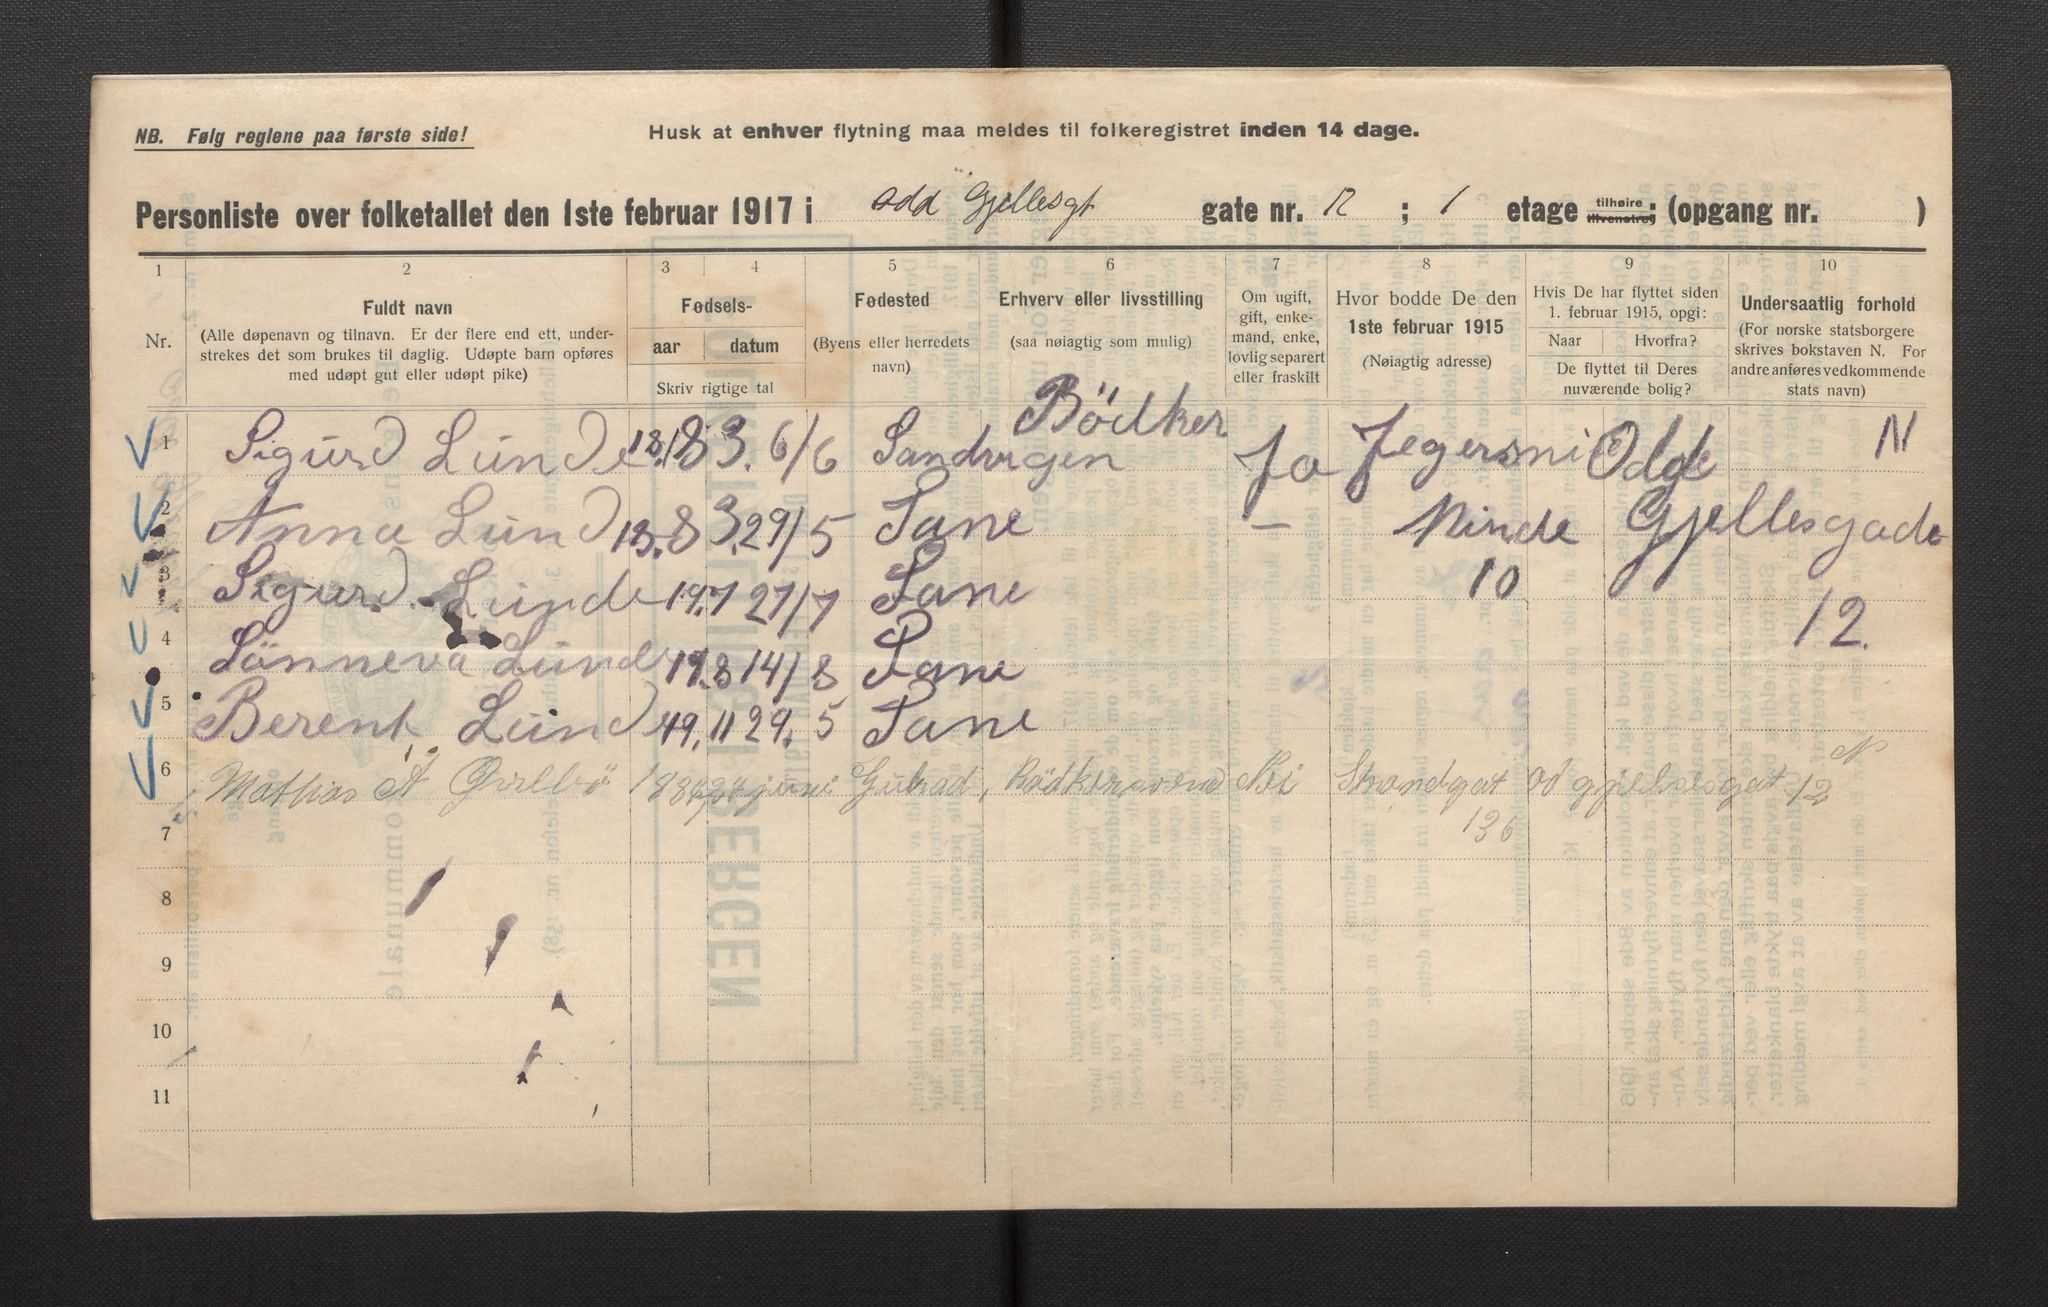 NB. Følg reglene paa første side!
Husk at enhver flytning maa meldes til folkeregistret inden 14 dage.
Personliste over folketallet den 1ste februar 1917 i Odd Gjellesgt gate nr. 12 ; 1 etage tilhøire tilvenstre; (opgang nr. )
1 2 3 4 5 6 7 8 9 10
Nr.
Fuldt navn
(Alle døpenavn og tilnavn. Er der flere end ett, under-
strekes det som brukes til daglig. Udøpte barn opføres
med udøpt gut eller udøpt pike)
Fødsels-
aar datum
Skriv rigtige tal
Fødested
(Byens eller herredets
navn)
Erhverv eller livsstilling
(saa nøiagtig som mulig)
Om ugift,
gift, enke-
mand, enke,
lovlig separert
eller fraskilt
Hvor bodde De den
1ste februar 1915
(Nøiagtig adresse)
Hvis De har flyttet siden
1. februar 1915, opgi:
Naar Hvorfra?
De flyttet til Deres
nuværende bolig?
Undersaatlig forhold
(For norske statsborgere
skrives bokstaven N. For
andre anføres vedkommende
stats navn)
Bödker
1 Sigurd Lunde 18.83. 6/6 Sandvigen Ja Jegersmi Odge N
2 Anna Lund 18.83. 29/5 Sane — Minde Gjellesgade
3 Sigurd Lunde 19.7 27/7 Sane 10 12.
4 Sönneva Lunde 19.8 14/8 Sane
5 Berent Lunde 19.11 29.5 Sane
6 Mathias A 188 juni Bödkersvend Nei Strandgat od gjelsesgat 12 N
136
7
8
9
10
11